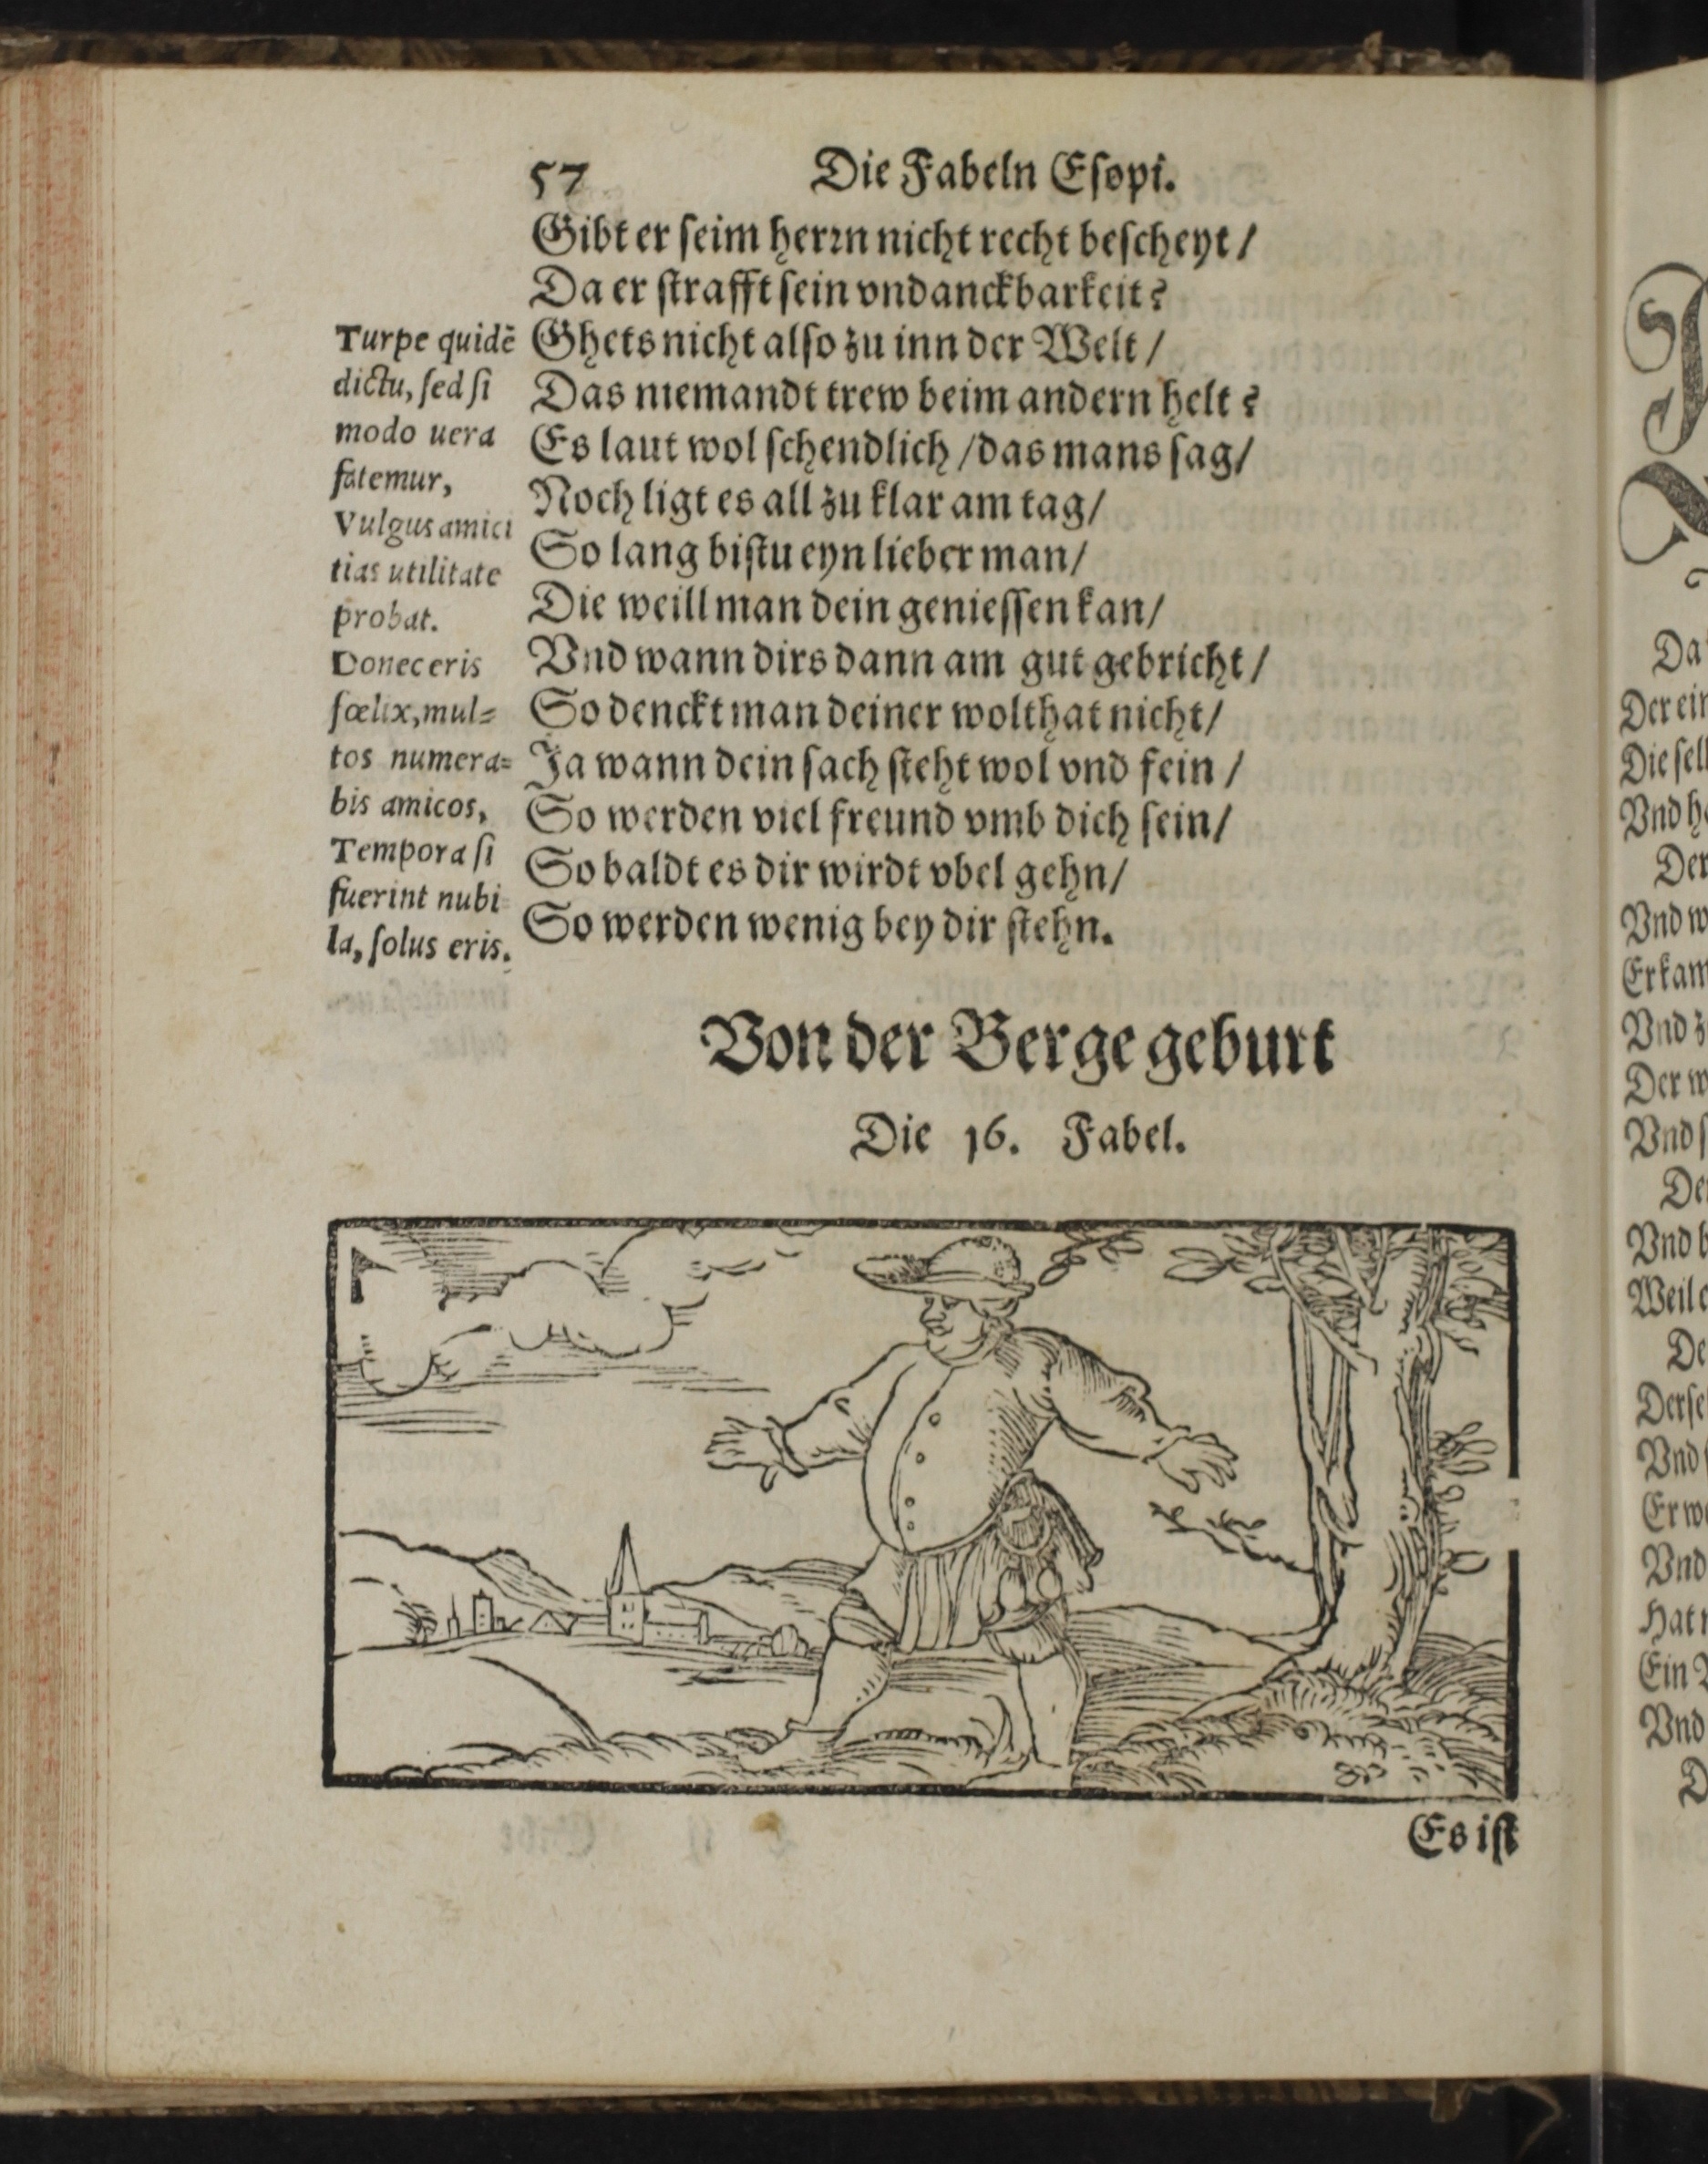 57 Die Fabeln Eſopi.
Gibt er ſeim herꝛn nicht recht beſcheyt /
Da er ſtrafft ſein vndanckbarkeit?
Ghets nicht alſo zu inn der Welt /
Das niemandt trew beim andern helt?
Es laut wol ſchendlich / das mans ſag/
Noch ligt es all zu klar am tag/
So lang biſtu eyn lieber man/
Die weill man dein genieſſen kan/
Vnd wann dirs dann am gut gebricht /
So denckt man deiner wolthat nicht/
Ja wann dein ſach ſteht wol vnd fein /
So werden viel freund vmb dich ſein/
So baldt es dir wirdt vbel gehn/
So werden wenig bey dir ſtehn.
Turpe quidē
dictu, ſed ſi
modo uera
fatemur,
Vulgus amici
tias utilitate
probat.
Donec eris
fœlix, mul⸗
tos numera⸗
bis amicos,
Tempora ſi
fuerint nubi
la, ſolus eris.
Von der Berge geburt
Die 16. Fabel.
Es iſt
Da
Der ein
Die ſell
Vnd he
Der
Vnd w
Er kam
Vnd z
Der w
Vnd ſ
De
Vnd b
Weil
De
Derſe
Vnd
Er w
Vnd
Hat
Ein
Vnd
D